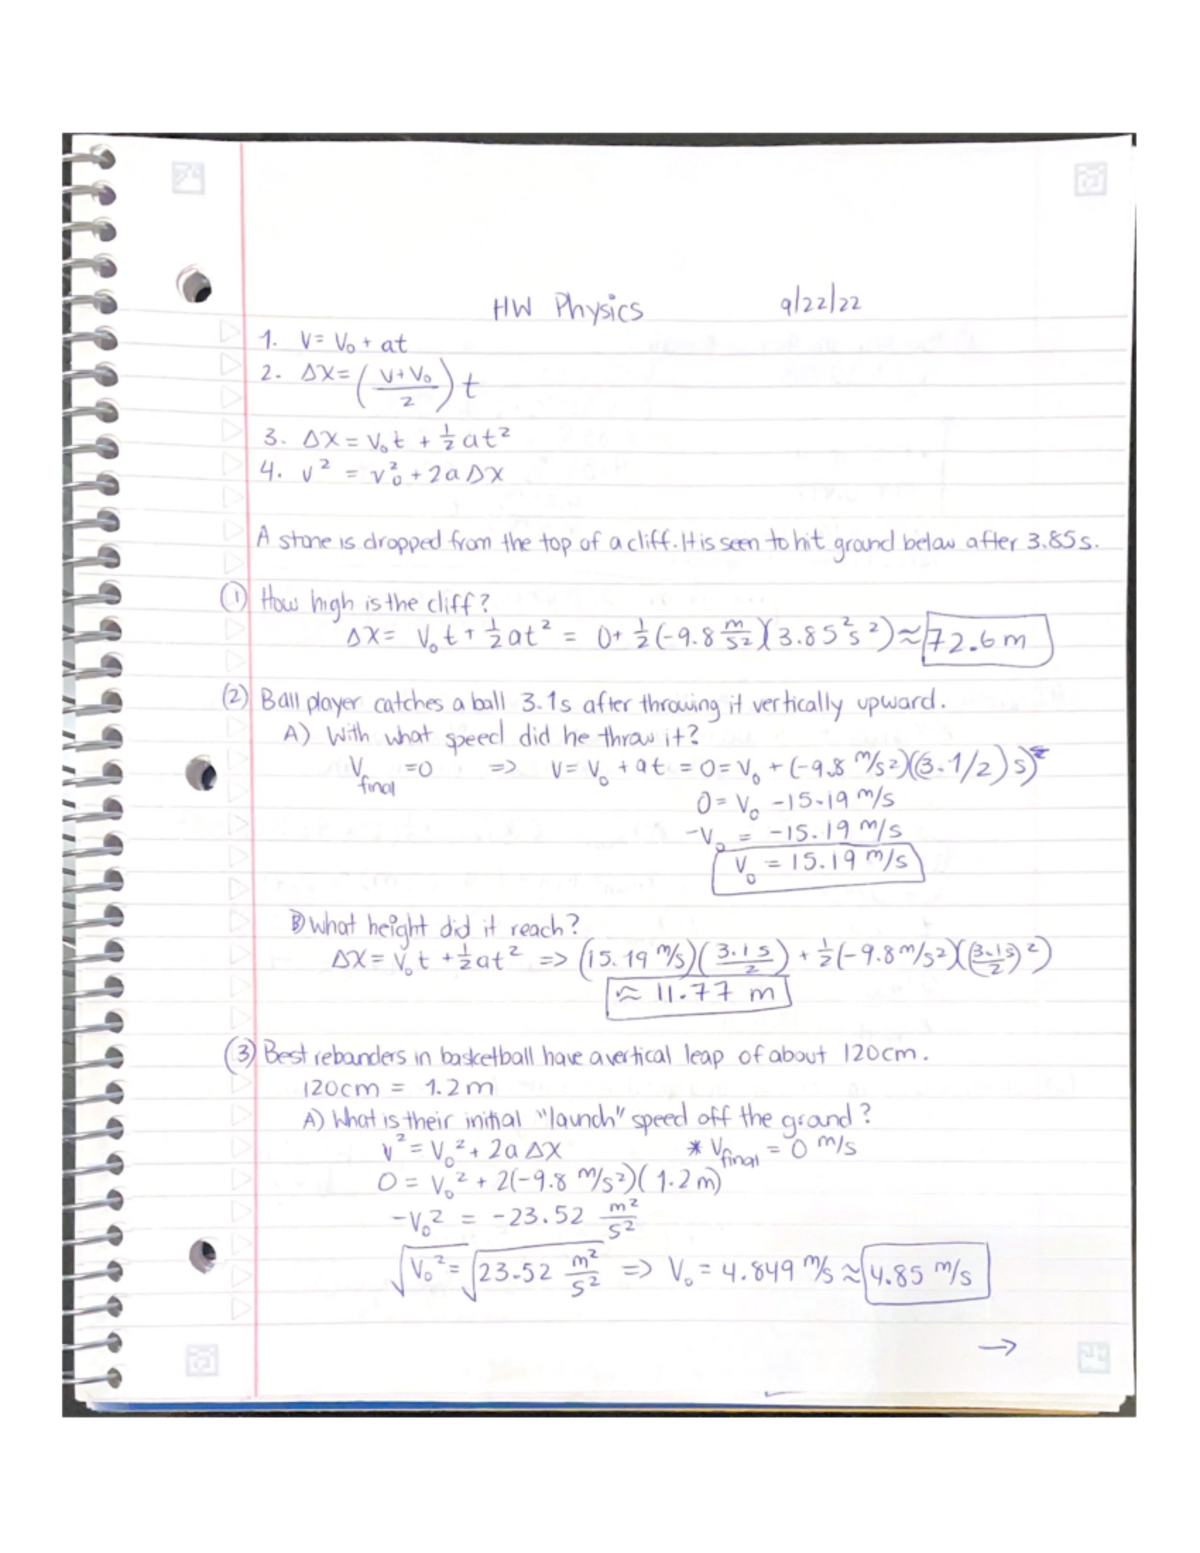 HW Physics 9/22/22
1. V = V₀ + at
2. ΔX = ((V+V₀)/2) t
3. ΔX = V₀t + ½at²
4. v² = v₀² + 2aΔX
A stone is dropped from the top of a cliff. It is seen to hit ground below after 3.85s.
(1) How high is the cliff?
ΔX = V₀t + ½at² = 0 + ½(-9.8 m/s²)(3.85²s²) ≈ 72.6 m
(2) Ball player catches a ball 3.1s after throwing it vertically upward.
A) With what speed did he throw it?
V_final = 0 => V = V₀ + at = 0 = V₀ + (-9.8 m/s²)((3.1/2)s)
0 = V₀ - 15.19 m/s
-V₀ = -15.19 m/s
V₀ = 15.19 m/s
B) What height did it reach?
ΔX = V₀t + ½at² => (15.19 m/s)(3.1s/2) + ½(-9.8 m/s²)((3.1s/2)²)
≈ 11.77 m
(3) Best rebounders in basketball have a vertical leap of about 120cm.
120cm = 1.2m
A) What is their initial "launch" speed off the ground?
v² = V₀² + 2aΔX * V_final = 0 m/s
0 = V₀² + 2(-9.8 m/s²)(1.2m)
-V₀² = -23.52 m²/s²
√V₀² = √23.52 m²/s² => V₀ = 4.849 m/s ≈ 4.85 m/s
→